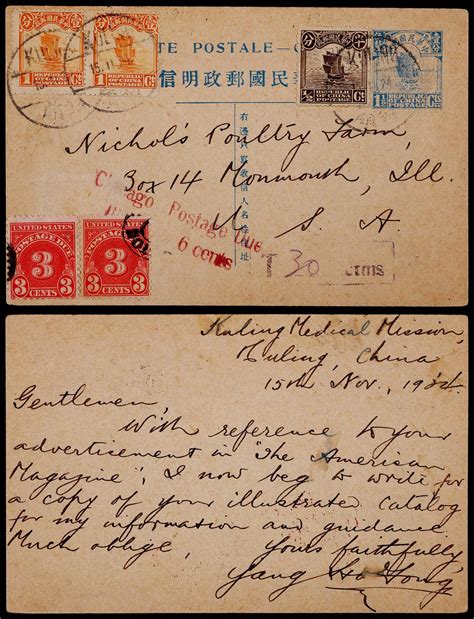 KULI
15.11
TE POSTALE—C
民國郵政明信
有此面只寫收信人名姓住址
1 REPUBLIC OF CHINA POSTAGE Ct.
1 REPUBLIC OF CHINA POSTAGE Ct.
½ REPUBLIC OF CHINA POSTAGE Ct.
1½ REPUBLIC OF CHINA POSTAGE Cts
Nichol's Poultry Farm,
Box 14 Monmouth, Ill.
U. S. A.
Chicago Postage Due
6 cents
T 30
UNITED STATES POSTAGE DUE 3 CENTS
UNITED STATES POSTAGE DUE 3 CENTS
Kuling Medical Mission,
Kuling, China
15th Nov.,
Gentlemen
With reference to your
advertisement in "The American
Magazine", I now beg to write for
a copy of your illustrated catalog
for my information and guidance.
Much oblige,
Yours faithfully,
Yang